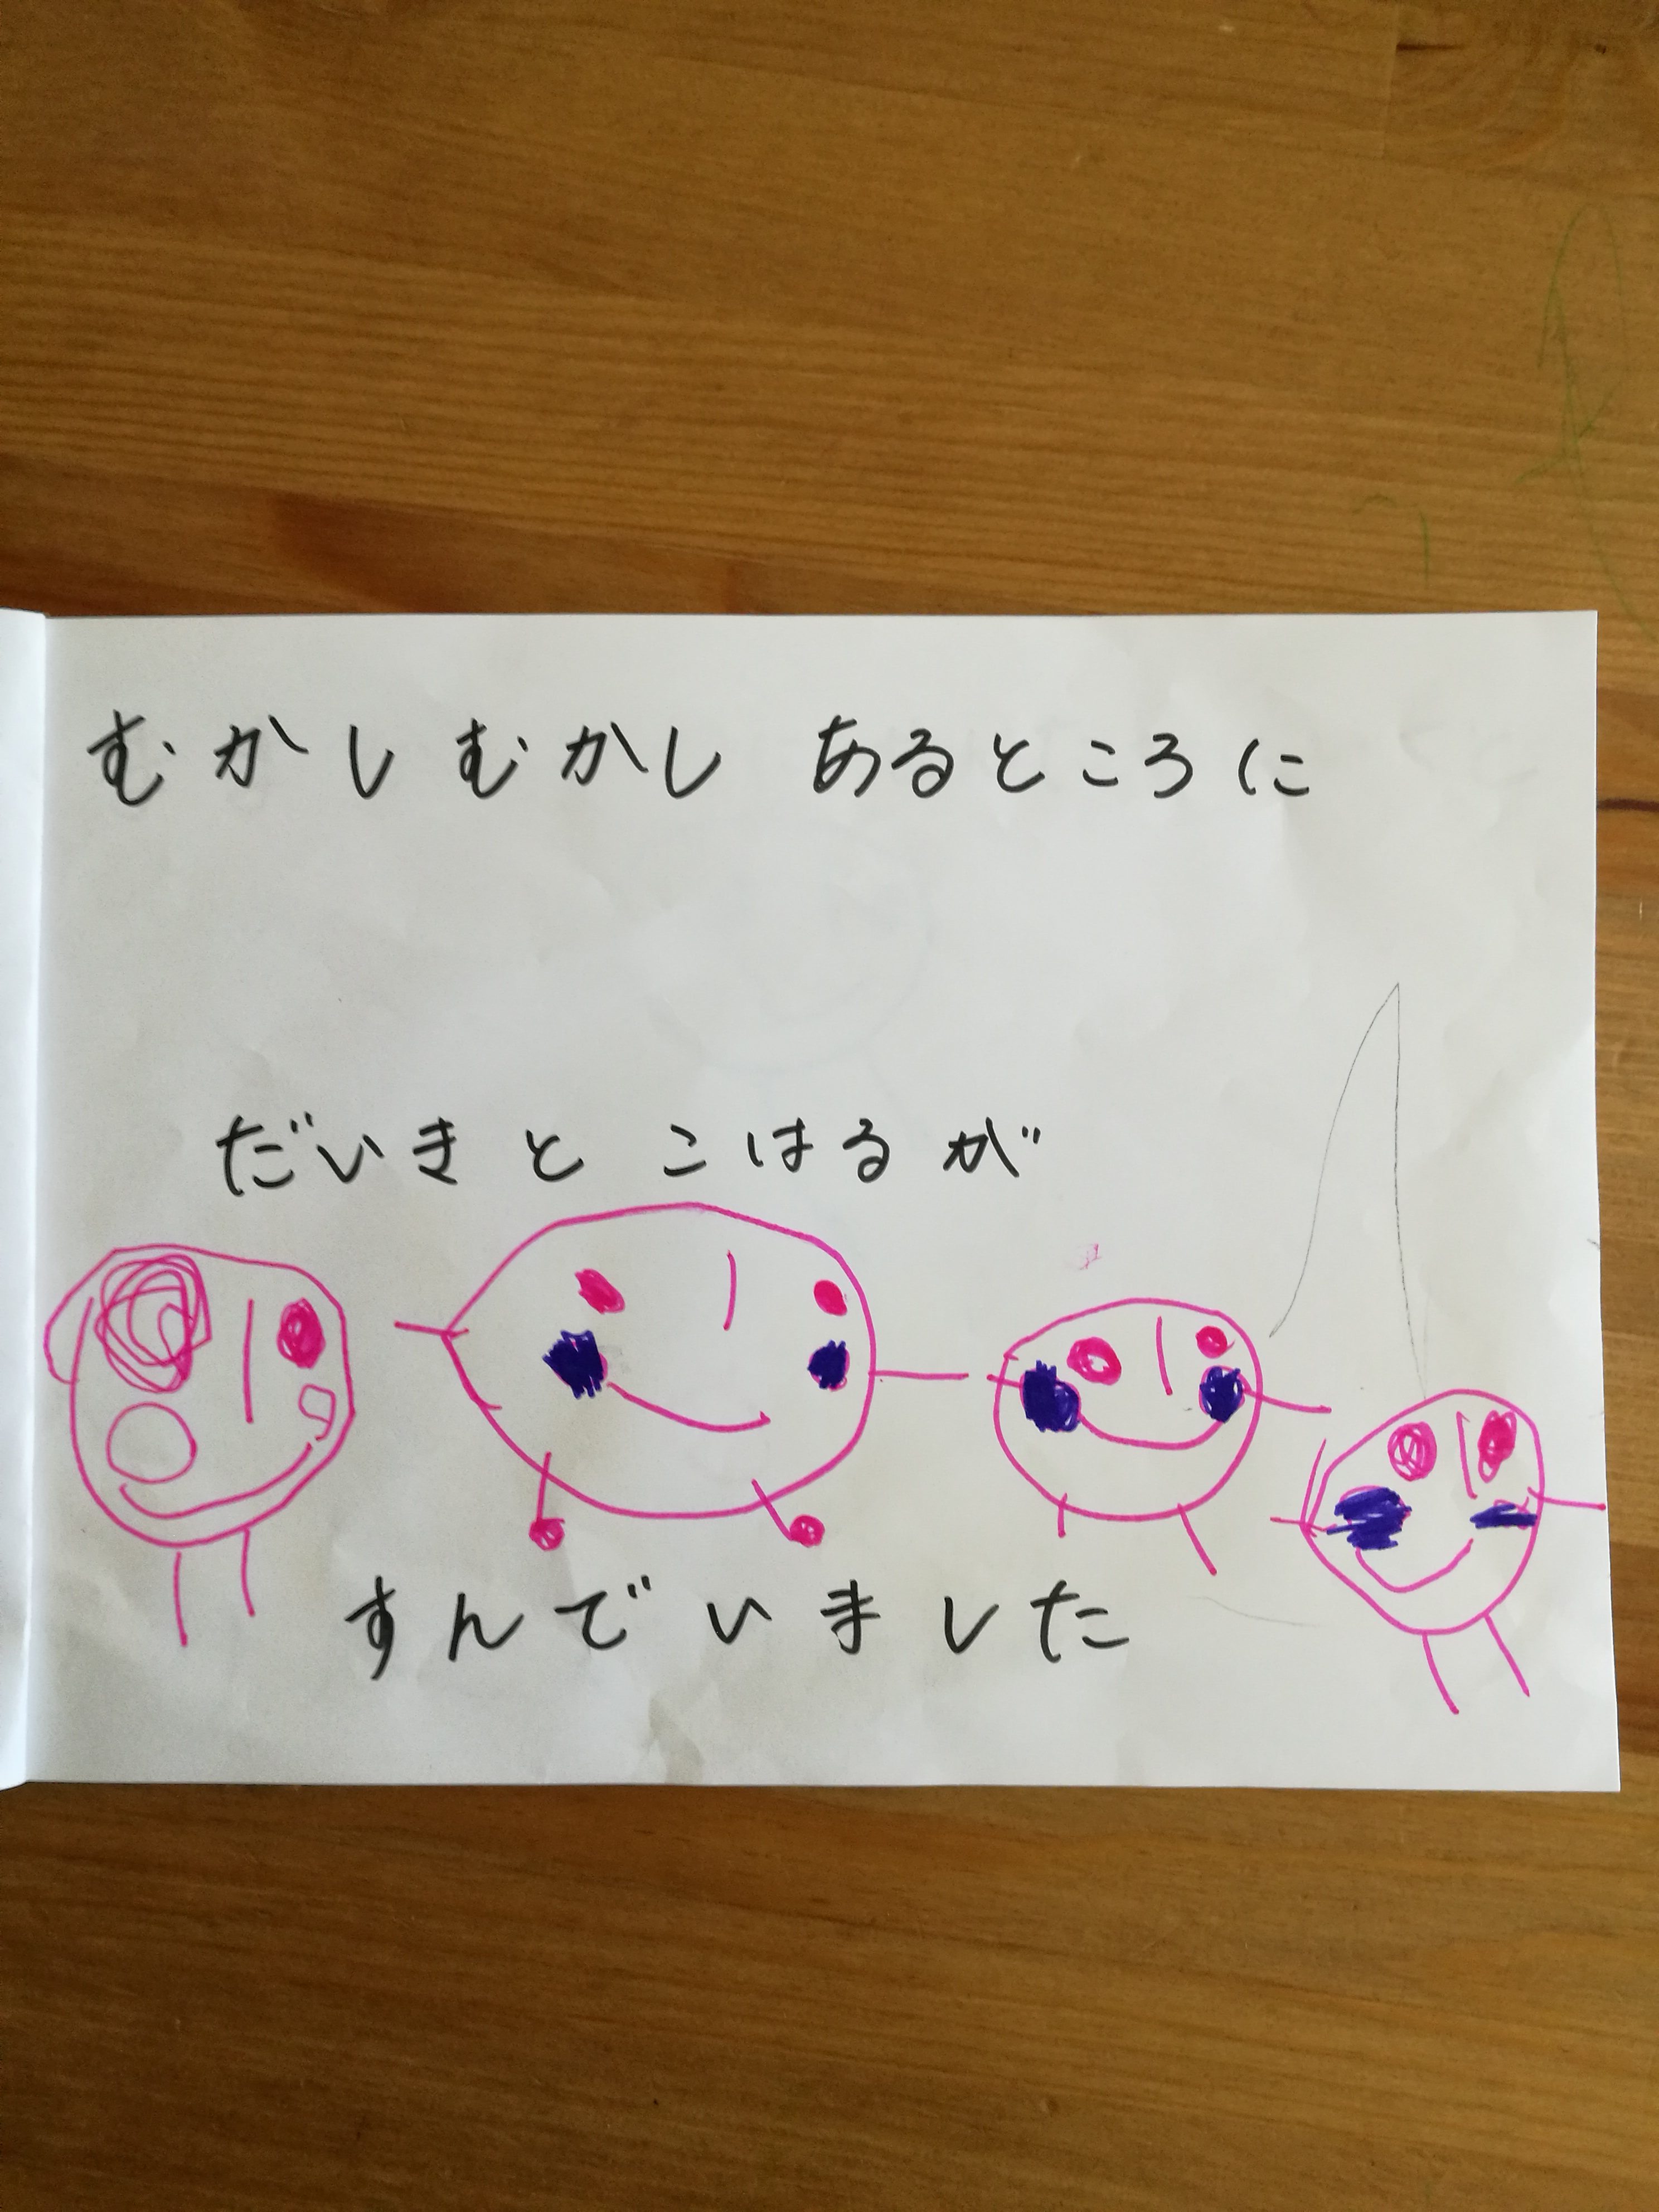 むかしむかし あるところに
だいきと こはるが
すんでいました